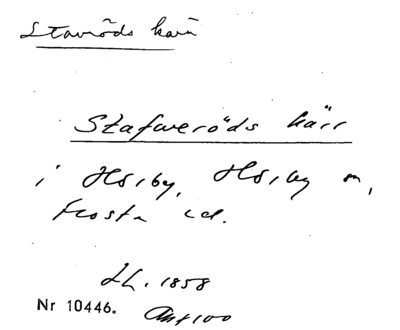 Stavröds kärr
Stafweröds kärr
i Hörby, Hörby sn,
Frosta hd.
LL. 1858
Nr 10446. Akt 100